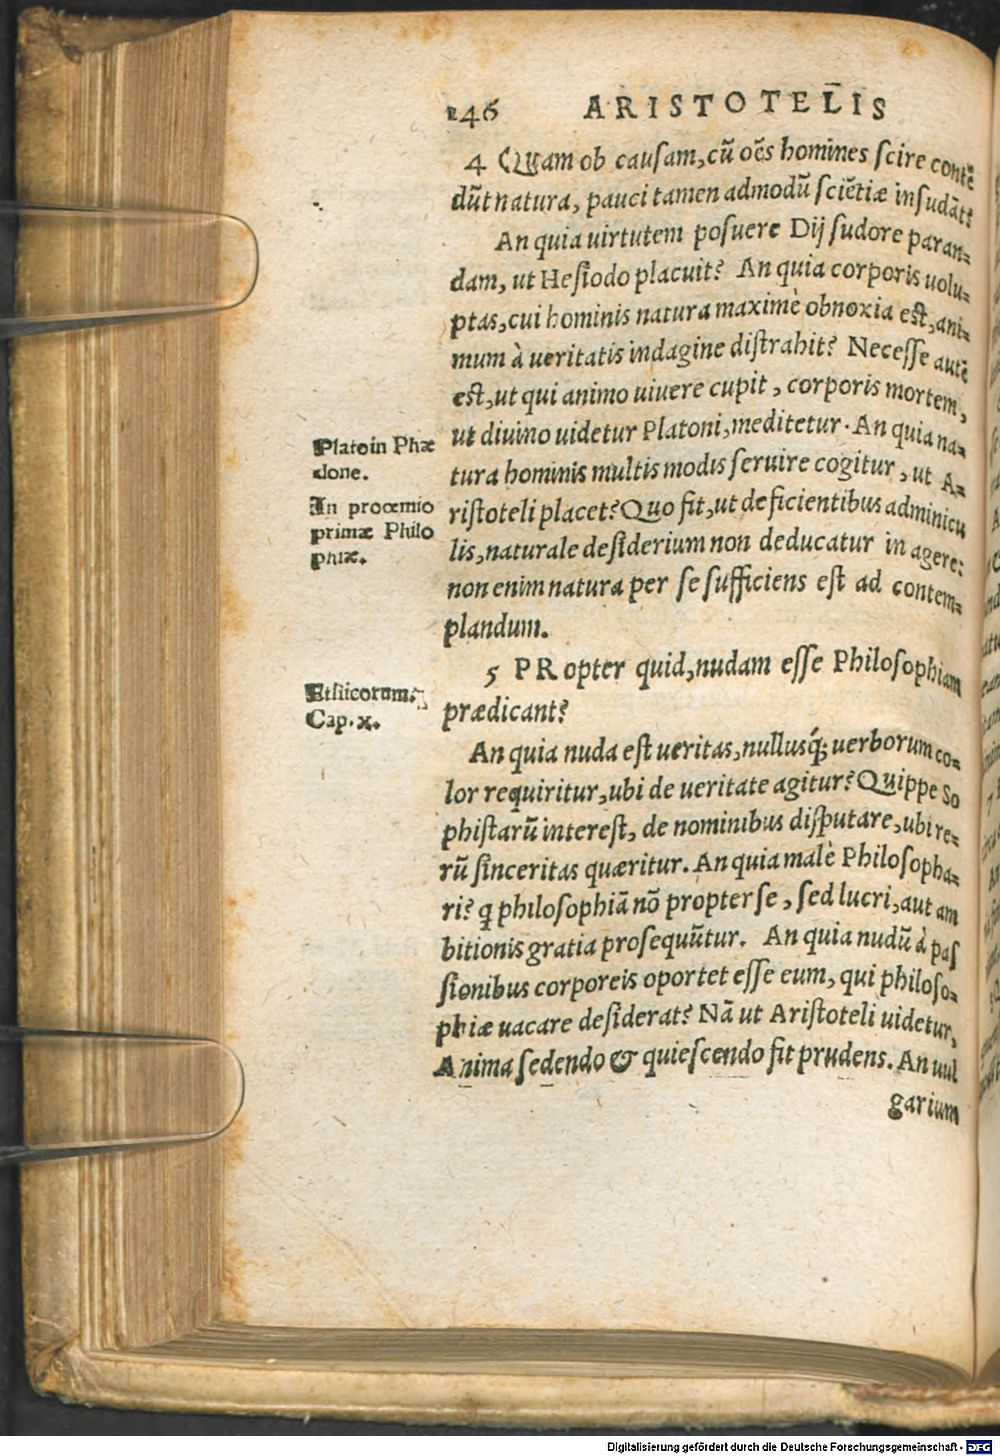 146 ARISTOTELIS
4 Quam ob causam, cũ oẽs homines scire contẽ
dũt natura, pauci tamen admodũ sciẽtiæ insudãt?
An quia uirtutem posuere Dij sudore paran-
dam, ut Hesiodo placuit? An quia corporis uolu-
ptas, cui hominis natura maximè obnoxia est, ani-
mum à ueritatis indagine distrahit? Necesse autẽ
est, ut qui animo uiuere cupit, corporis mortem,
ut diuino uidetur Platoni, meditetur. An quia na-
tura hominis multis modis seruire cogitur, ut A-
ristoteli placet? Quo fit, ut deficientibus adminicu
lis, naturale desiderium non deducatur in agere:
non enim natura per se sufficiens est ad contem-
plandum.
Plato in Phæ
done.
In proœmio
primæ Philo
phiæ.
5 PRopter quid, nudam esse Philosophiam
prædicant?
Ethicorum.
Cap. x.
An quia nuda est ueritas, nullusq́; uerborum co-
lor requiritur, ubi de ueritate agitur? Quippe So
phistarũ interest, de nominibus disputare, ubi re-
rũ sinceritas quæritur. An quia malè Philosopha-
ri? q philosophiã nõ propter se, sed lucri, aut am
bitionis gratia prosequũtur. An quia nudũ à pas
sionibus corporeis oportet esse eum, qui philoso-
phiæ uacare desiderat? Nã ut Aristoteli uidetur,
Anima sedendo & quiescendo fit prudens. An uul
garium
Digitalisierung gefördert durch die Deutsche Forschungsgemeinschaft - DFG